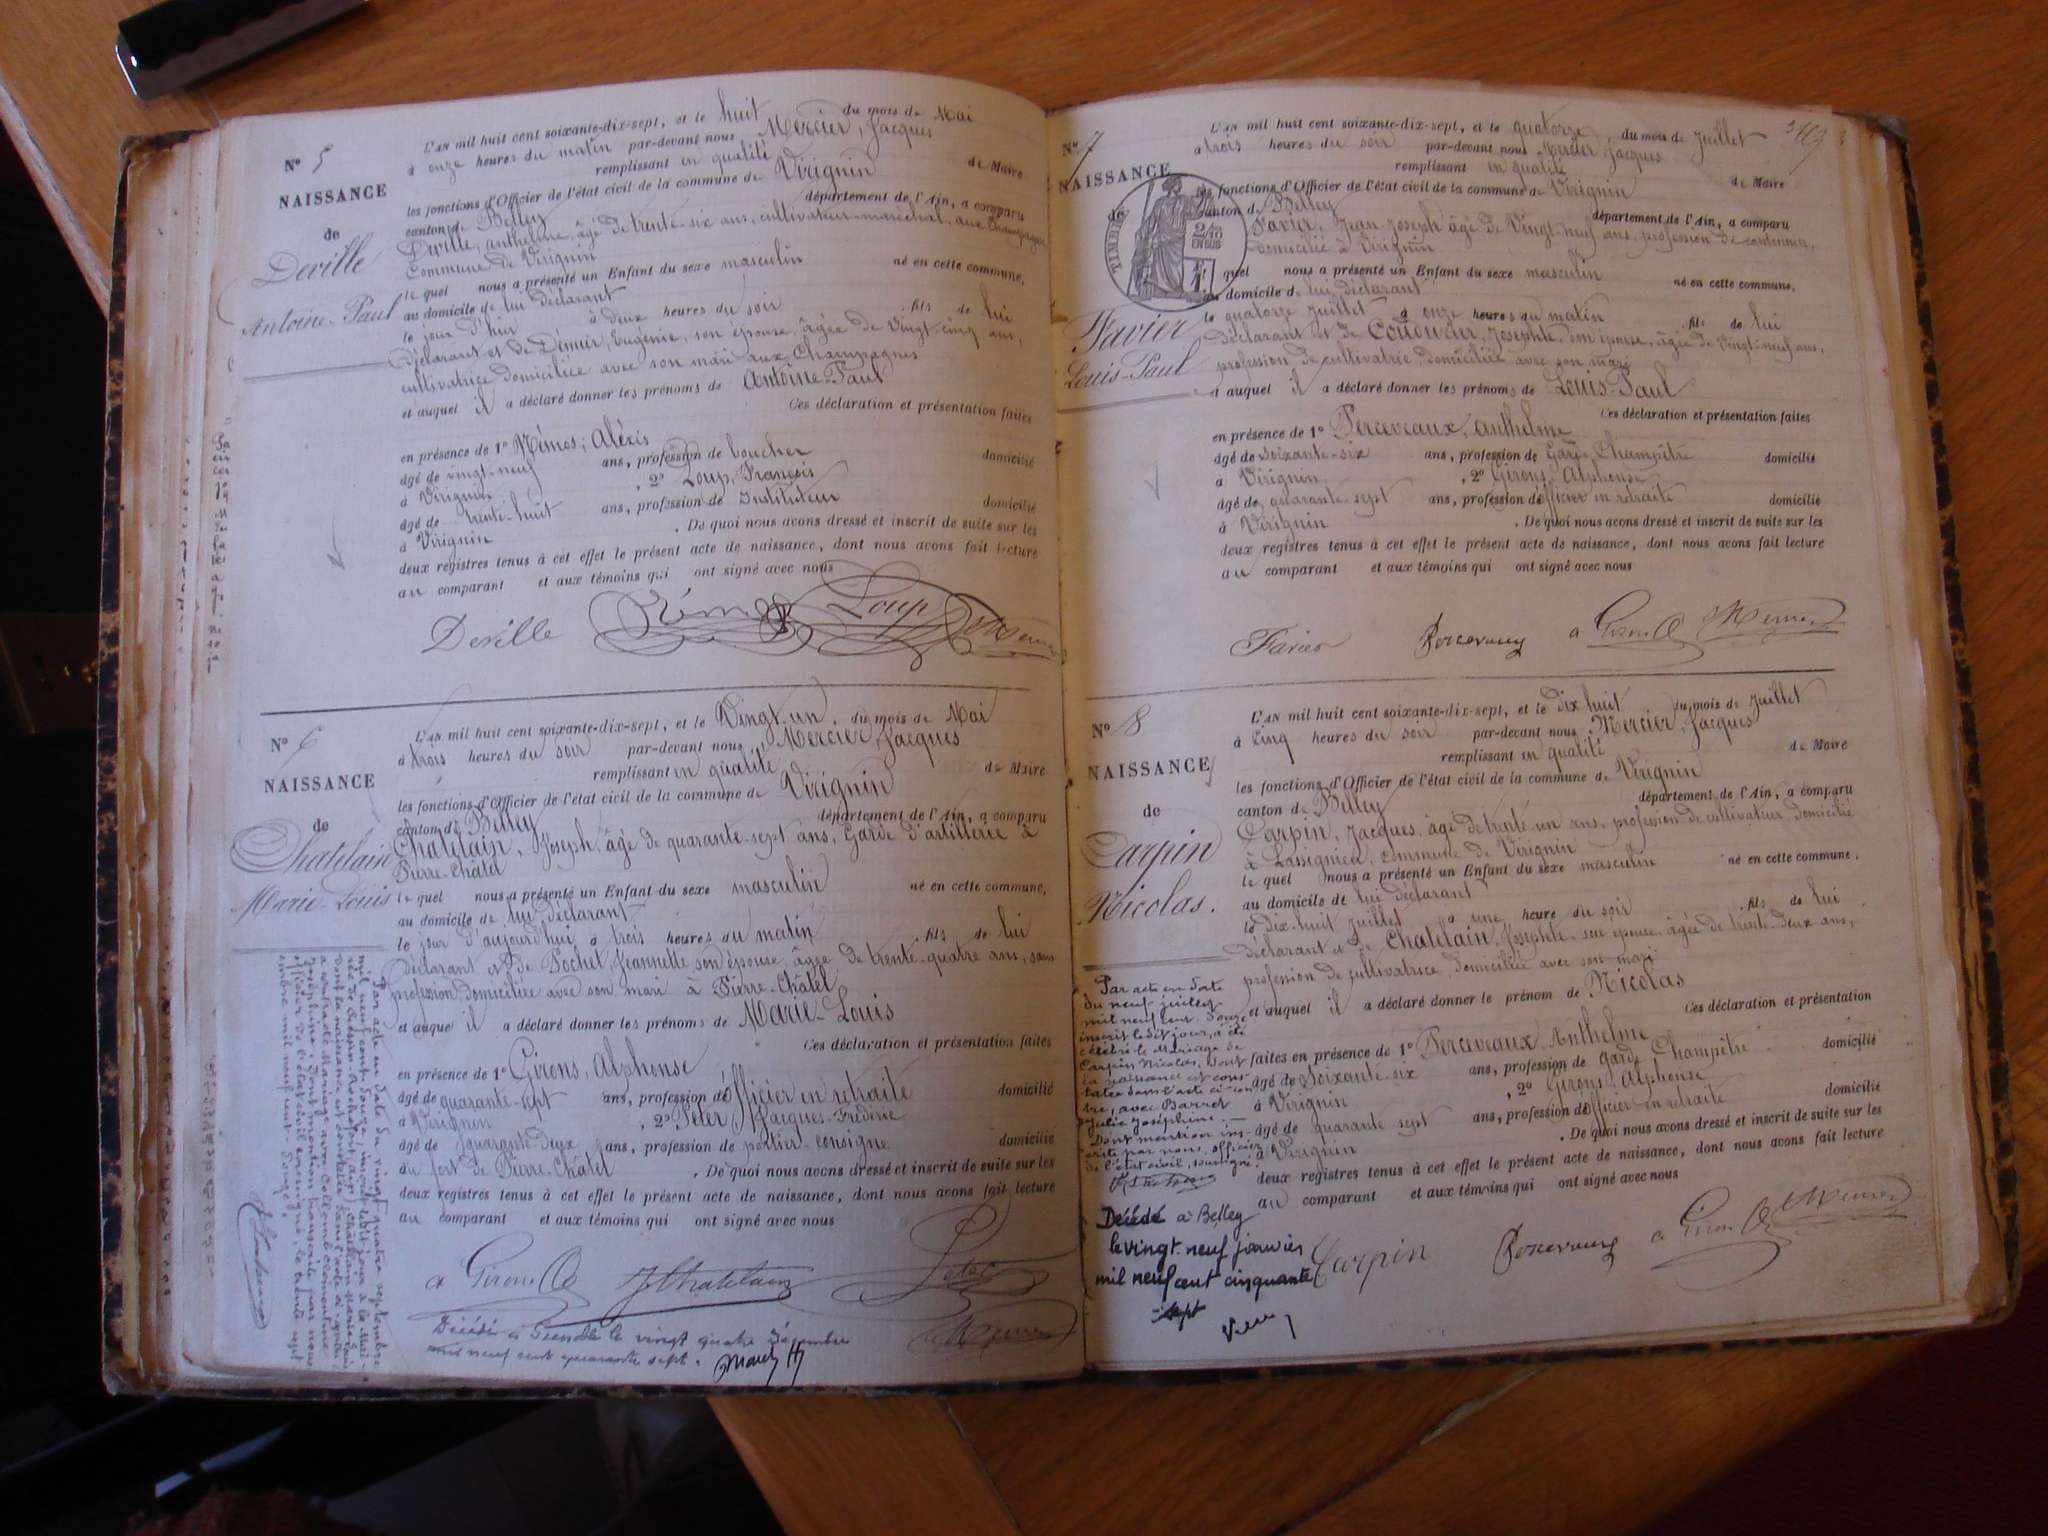 N° 5
NAISSANCE
de
Deville
Antoine-Paul
L'AN mil huit cent soixante-dix-sept, et le huit du mois de Mai
à onze heures du matin par-devant nous Mercier, Jacques
remplissant en qualité de Maire
les fonctions d'Officier de l'état civil de la commune de Virignin
canton de Belley département de l'Ain, a comparu
Deville, anthelme, âgé de trente-six ans, cultivateur-maréchal, aux Champagnes
Commune de Virignin
le quel nous a présenté un Enfant du sexe masculin né en cette commune,
au domicile de lui déclarant
le jour d'hier à deux heures du soir fils de lui
déclarant et de Eugénie, son épouse, âgée de Vingt-cinq ans,
cultivatrice domiciliée avec son mari aux Champagnes
et auquel il a déclaré donner les prénoms de Antoine-Paul
Ces déclaration et présentation faites
en présence de 1° Rémos, Aléxis
âgé de vingt-neuf ans, profession de boucher domicilié
à Virignin , 2° Loup, François
âgé de trente-huit ans, profession de Instituteur domicilié
à Virignin . De quoi nous avons dressé et inscrit de suite sur les
deux registres tenus à cet effet le présent acte de naissance, dont nous avons fait lecture
au comparant et aux témoins qui ont signé avec nous
Deville Loup
N° 6
NAISSANCE
de
Chatelain
Marie-Louis
L'AN mil huit cent soixante-dix-sept, et le Vingt-un du mois de Mai
à trois heures du soir par-devant nous Mercier, Jacques
remplissant en qualité de Maire
les fonctions d'Officier de l'état civil de la commune de Virignin
canton de Belley département de l'Ain, a comparu
Chatelain, Joseph, âgé de quarante-sept ans, Garde d'artillerie à
Pierre-Châtel
le quel nous a présenté un Enfant du sexe masculin né en cette commune,
au domicile de lui déclarant
le jour d'aujourd'hui à trois heures du matin fils de lui
déclarant et de Pochet, Jeannette son épouse, âgée de trente-quatre ans, sans
profession, domiciliée avec son mari à Pierre-Châtel
et auquel il a déclaré donner les prénoms de Marie-Louis
Ces déclaration et présentation faites
en présence de 1° Girons, Alphonse
âgé de quarante-sept ans, profession d'officier en retraite domicilié
à Virignin , 2° Peter, Jacques-Frédéric
âgé de quarante-deux ans, profession de portier-consigne domicilié
au fort de Pierre-Châtel . De quoi nous avons dressé et inscrit de suite sur les
deux registres tenus à cet effet le présent acte de naissance, dont nous avons fait lecture
au comparant et aux témoins qui ont signé avec nous
a Giron J Chatelain Peter
Par acte en date du vingt quatre septembre
mil neuf cent douze, inscrit ledit jour à la Mai-
Chatelain Marie Louis
dont la naissance est constatée dans l'acte ci-contre
a contracté Mariage avec
Joséphine, dont mention transcrite par nous
officier de l'état civil soussigné, le trente sept-
embre mil neuf cent douze.
Décédé à Grenoble le vingt quatre Décembre
mil neuf cent quarante sept.
N° 7
NAISSANCE
de
TIMBRE
2/10
EN SUS
Favier
Louis-Paul
L'AN mil huit cent soixante-dix-sept, et le quatorze du mois de Juillet
à trois heures du soir par-devant nous Mercier Jacques
remplissant en qualité de Maire
les fonctions d'Officier de l'état civil de la commune de Virignin
canton de Belley département de l'Ain, a comparu
Favier, Jean-Joseph âgé de Vingt-neuf ans, profession de
domicilié à Virignin
quel nous a présenté un Enfant du sexe masculin né en cette commune,
au domicile de lui déclarant
le quatorze juillet à onze heures du matin fils de lui
déclarant et de Couturier, Josephte, son épouse, âgée de Vingt-neuf ans,
profession de cultivatrice, domiciliée avec son mari
et auquel il a déclaré donner les prénoms de Louis-Paul
Ces déclaration et présentation faites
en présence de 1° Perceveaux, anthelme
âgé de soixante-six ans, profession de Garde Champêtre domicilié
à Virignin , 2° Girons, Alphonse
âgé de quarante-sept ans, profession d'officier en retraite domicilié
à Virignin . De quoi nous avons dressé et inscrit de suite sur les
deux registres tenus à cet effet le présent acte de naissance, dont nous avons fait lecture
au comparant et aux témoins qui ont signé avec nous
Favier Perceveaux a Giron Mercier
N° 8
NAISSANCE
de
Carpin
Nicolas.
L'AN mil huit cent soixante-dix-sept, et le dix huit du mois de Juillet
à cinq heures du soir par-devant nous Mercier, Jacques
remplissant en qualité de Maire
les fonctions d'Officier de l'état civil de la commune de Virignin
canton de Belley département de l'Ain, a comparu
Carpin, Jacques, âgé de trente-un ans, profession de cultivateur, domicilié
à Lassignieu, commune de Virignin
le quel nous a présenté un Enfant du sexe masculin né en cette commune,
au domicile de lui déclarant
le dix-huit juillet à une heure du soir fils de lui
déclarant et de Chatelain, Josephte son épouse âgée de trente-deux ans,
profession de cultivatrice, domiciliée avec son mari
et auquel il a déclaré donner le prénom de Nicolas
Ces déclaration et présentation
faites en présence de 1° Perceveaux, Anthelme
âgé de Soixante-six ans, profession de garde Champêtre domicilié
à Virignin , 2° Girons, Alphonse
âgé de quarante sept ans, profession d'officier en retraite domicilié
à Virignin . De quoi nous avons dressé et inscrit de suite sur les
deux registres tenus à cet effet le présent acte de naissance, dont nous avons fait lecture
au comparant et aux témoins qui ont signé avec nous
Carpin Perceveaux a Giron Mercier
Par acte en date
du neuf juillet
mil neuf cent douze
inscrit ledit jour, a été
célébré le Mariage de
Carpin Nicolas, dont
la naissance est cons-
tatée dans l'acte ci-con
tre, avec Barret
Julie Joséphine.
Dont mention ins-
crite par nous, officier
de l'état civil, soussigné.
Décédé à Belley
le vingt-neuf janvier
mil neuf cent cinquante
sept